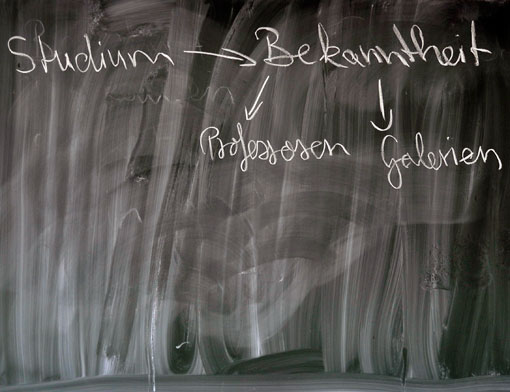 Studium → Bekanntheit
Professoren Galerien